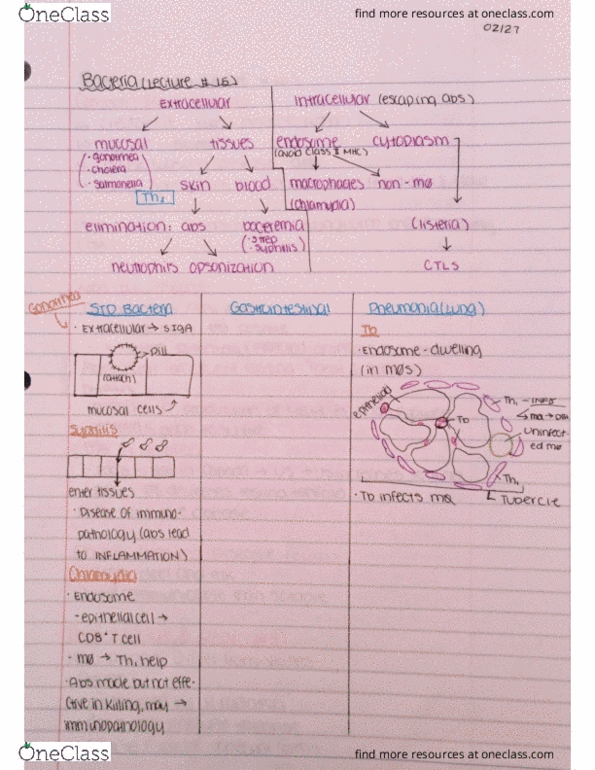 OneClass
find more resources at oneclass.com
02/27
Bacteria (Lecture #16)
extracellular
intracellular (escaping abs)
mucosal
tissues
endosome
cytoplasm
(avoid class I MHC)
• gonorrhea
• cholera
• salmonella
skin
blood
macrophages
non-mø
Th,
(chlamydia)
elimination: abs
baceremia
(listeria)
• strep
• syphilis
neutrophils
opsonization
CTLS
Gonorrhea
STD Bacteria
Gastrointestinal
Pneumonia (lung)
• Extracellular → SIgA
Tb
Pili
• Endosome-dwelling
(attach)
(in møs)
mucosal cells
epithelial
Th,
Tb
Uninfect-
ed mø
Syphilis
Th,
enter tissues
• Tb infects mø
Tubercle
• Disease of immuno-
pathology (abs lead
to INFLAMMATION)
Chlamydia
• Endosome
- epithelial cell →
CD8+ T cell
- mø → Th, help
• Abs made but not effe-
ctive in killing, may →
immunopathology
OneClass
find more resources at oneclass.com